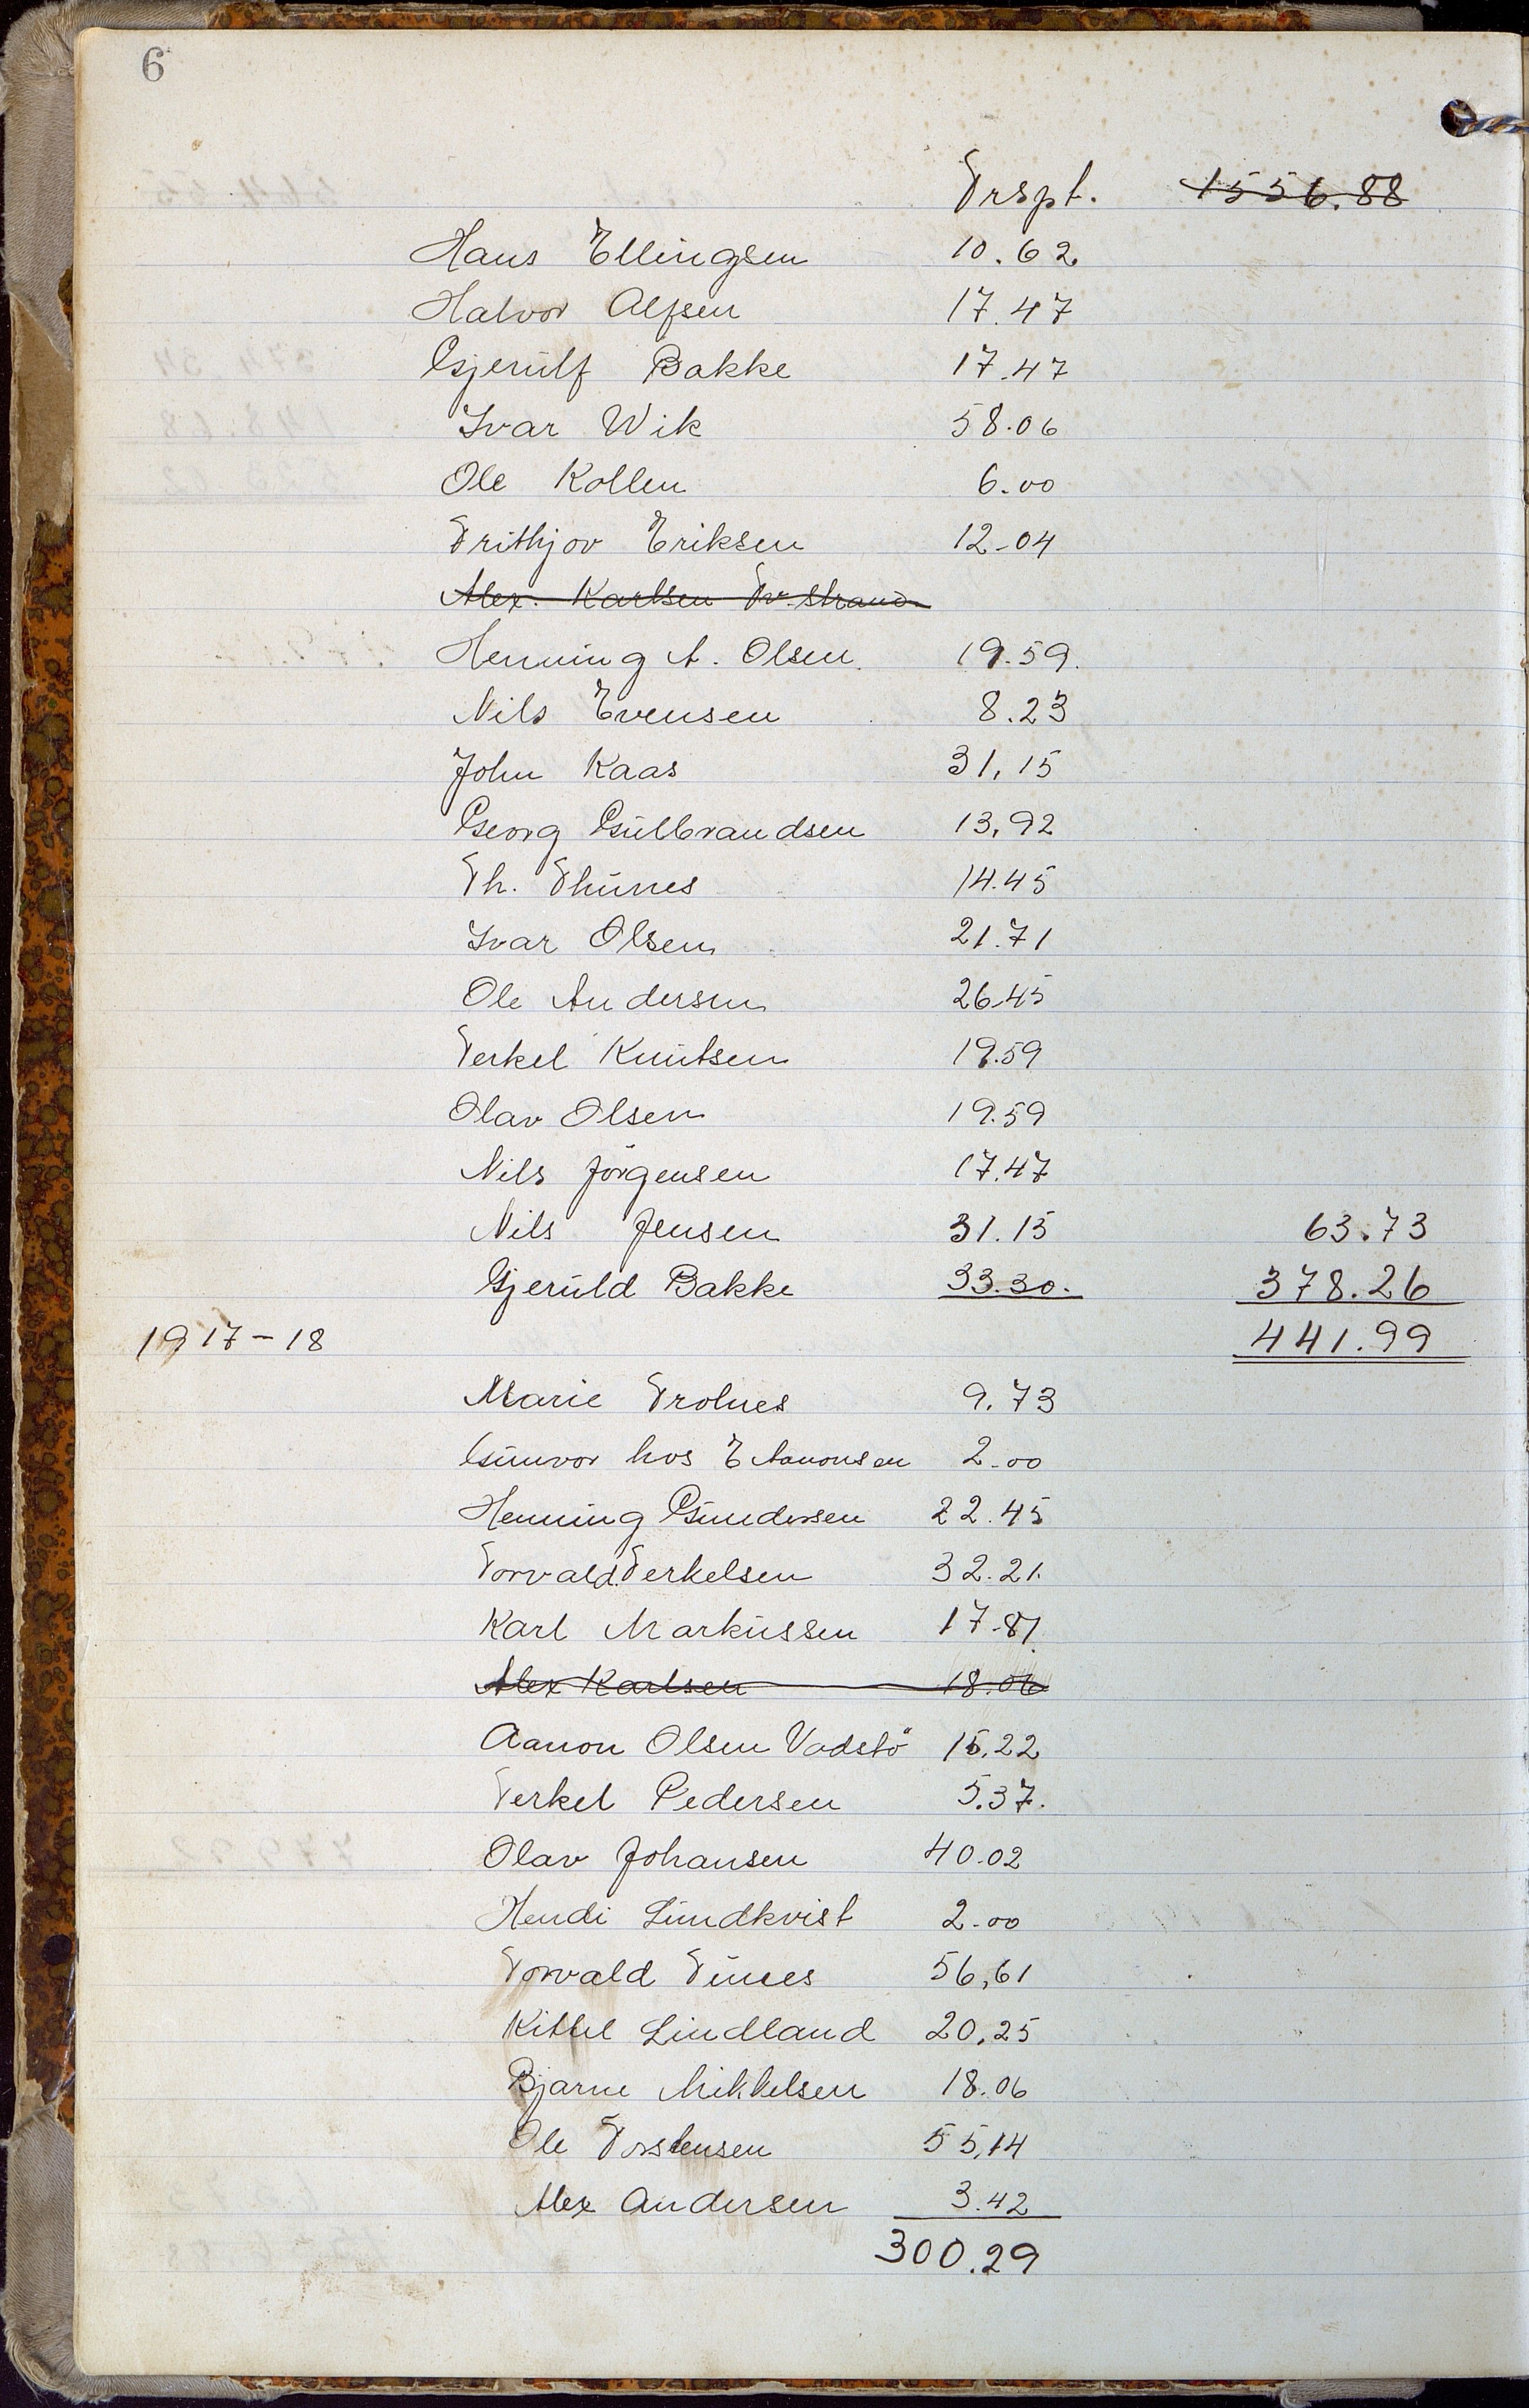 6
Trspt. 1556.88
Hans Ellingsen 10.62
Halvor Alfsen 17.47
Gjerulf Bakke 17.47
Ivar Wik 58.06
Ole Kollen 6.00
Frithjov Eriksen 12-04
Alex. Karlsen Tv.strand
Henning A. Olsen. 19.59.
Nils Evensen 8.23
John Kaas 31,15
Georg Gulbrandsen 13,92
Th. Thünes 14.45
Ivar Olsen 21.71
Ole Andersen 26.45
Terkel Knutsen 19.59
Olav Olsen 19.59
Nils Jörgensen 17.47
Nils Jensen 31.15 63.73
Gjeruld Bakke 33.30. 378.26
1917-18 441.99
Marie Trolnes 9.73
Gunvor hos E Aanonsen 2-00
Henning Gundersen 22.45
Torvald Terkelsen 32.21.
Karl Markussen 17-81
Alex Karlsen 18.06
Aanon Olsen Vadstö 15,22
Terkel Pedersen 5.37.
Olav Johansen 40.02
Hendi Lundkvist 2-00
Torvald Tünes 56,61
Kittel Lindland 20,25
Bjarne Mikkelsen 18.06
Ole Torstensen 55,14
Alex Andersen 3.42
300.29